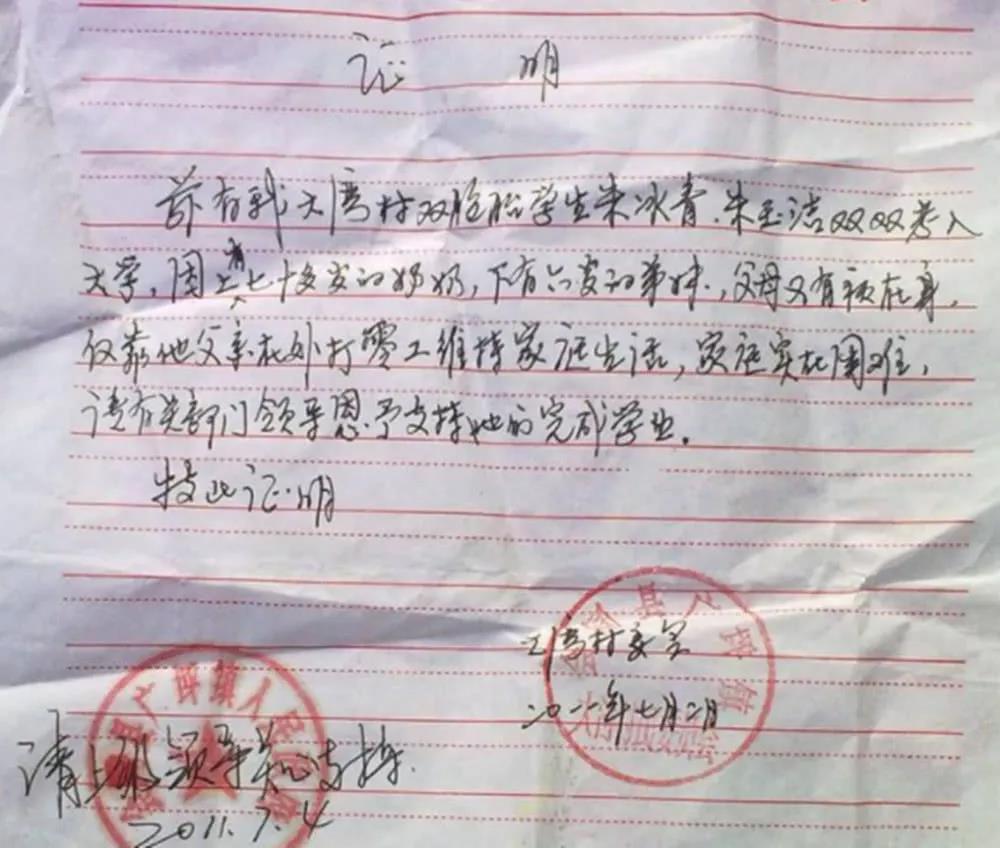 证 明
兹有我大湾村双胞胎学生朱冰青、朱玉洁双双考入
大学，因上有七十多岁的奶奶，下有六岁的弟妹，父母又有病在身，
仅靠他父亲在外打零工维持家庭生活，家庭实在困难，
请有关部门领导恩予支持她的完成学业。
特此证明
县广坪镇
大湾村委会
二0一一年七月二日
广坪镇人民
请上级领导关心支持.
2011.7.4